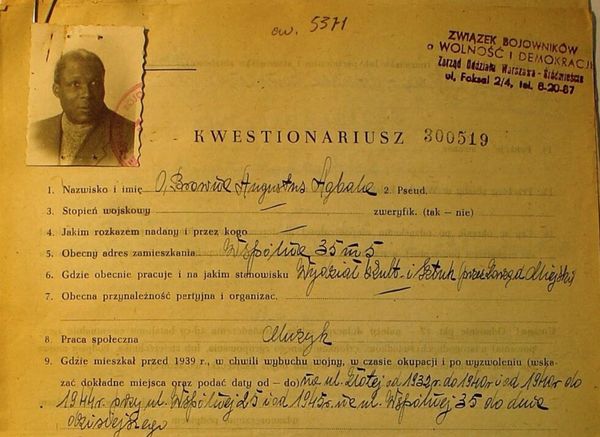 ew. 5371
ZWIĄZEK BOJOWNIKÓW
o WOLNOŚĆ i DEMOKRACJĘ
Zarząd Oddziału Warszawa - Śródmieście
ul. Foksal 2/4, tel. 6-20-87
KWESTIONARIUSZ 300519
1. Nazwisko i imię O'Browne Augustus Agbala 2. Pseud.
3. Stopień wojskowy — zweryfik. (tak – nie)
4. Jakim rozkazem nadany i przez kogo —
5. Obecny adres zamieszkania Wspólna 35 m 5
6. Gdzie obecnie pracuje i na jakim stanowisku Wydział Kult. i Sztuk (przez Zarząd Miejski)
7. Obecna przynależność partyjna i organizac. —
8. Praca społeczna Muzyk
9. Gdzie mieszkał przed 1939 r., w chwili wybuchu wojny, w czasie okupacji i po wyzwoleniu (wska-
zać dokładne miejsca oraz podać daty od – do) na ul. Złotej od 1932r. do 1940r i od 1940r do
1944r. przy ul. Wspólnej 25 i od 1945r. na ul. Wspólnej 35 do dnia
dzisiejszego